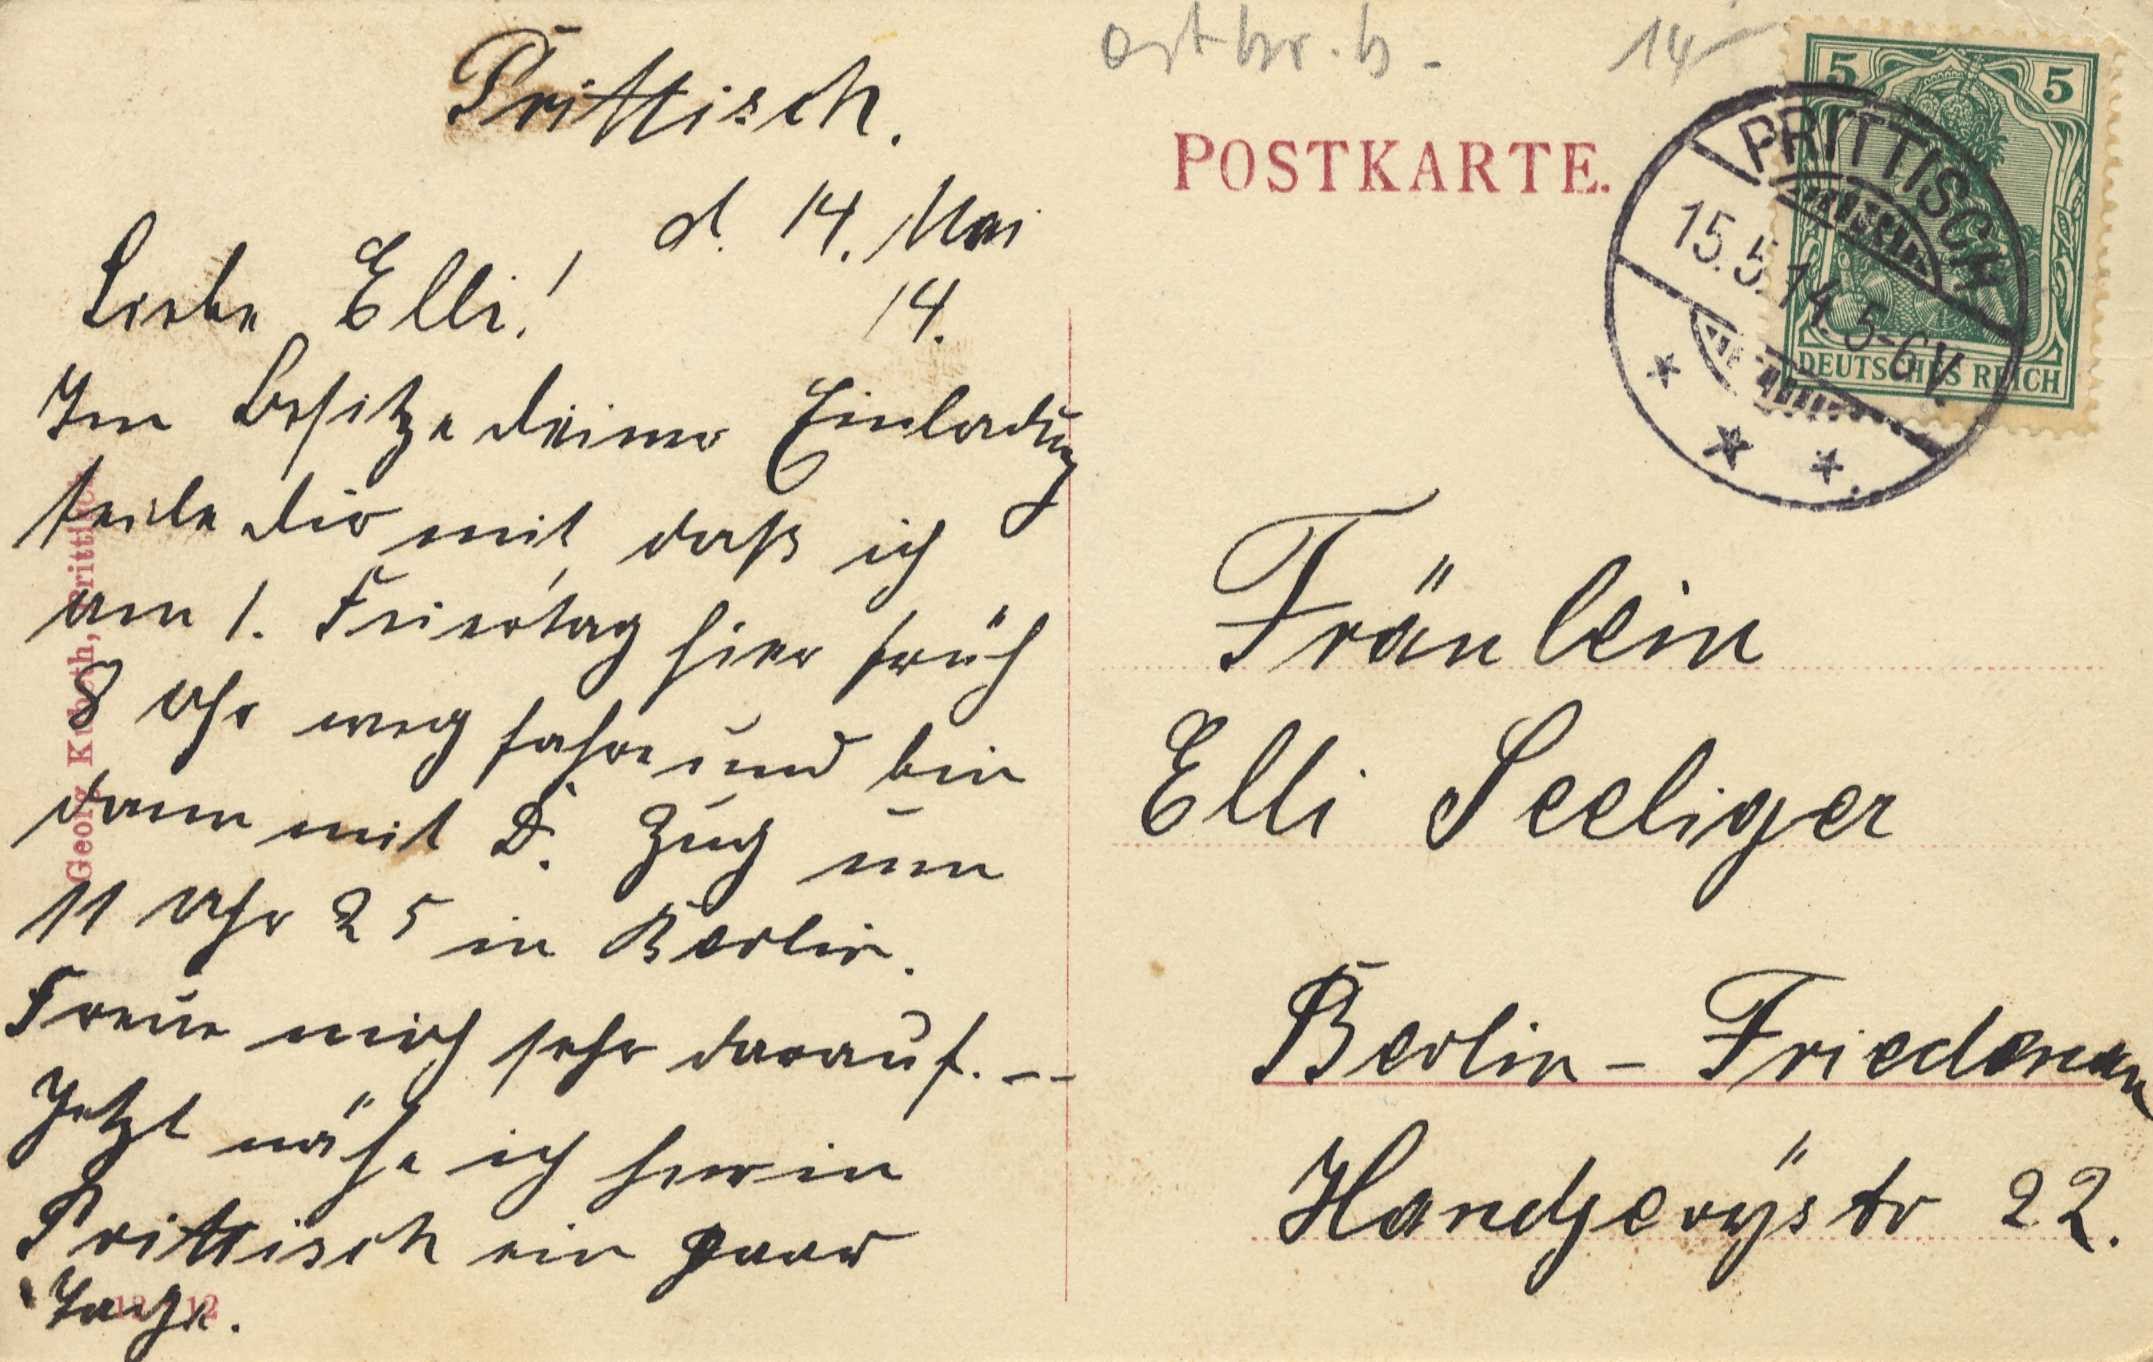 ostbr. b. 14
Prittisch.
d. 14. Mai
14.
Liebe Elli!
Im Besitze deiner Einladung
teile dir mit, daß ich
am 1. Feiertag hier früh
8 Uhr weg fahre und bin
dann mit D. Zug um
11 Uhr 25 in Berlin.
Freue mich sehr darauf. --
Jetzt nähe ich hier in
Prittisch ein paar
Tage.
Georg Kubeth, Prittisch.
12 12
POSTKARTE.
5 5
DEUTSCHES REICH
PRITTISCH
15.5.14. 5-6V.
Fräulein
Elli Seeliger
Berlin - Friedenau
Handjerÿstr 22.